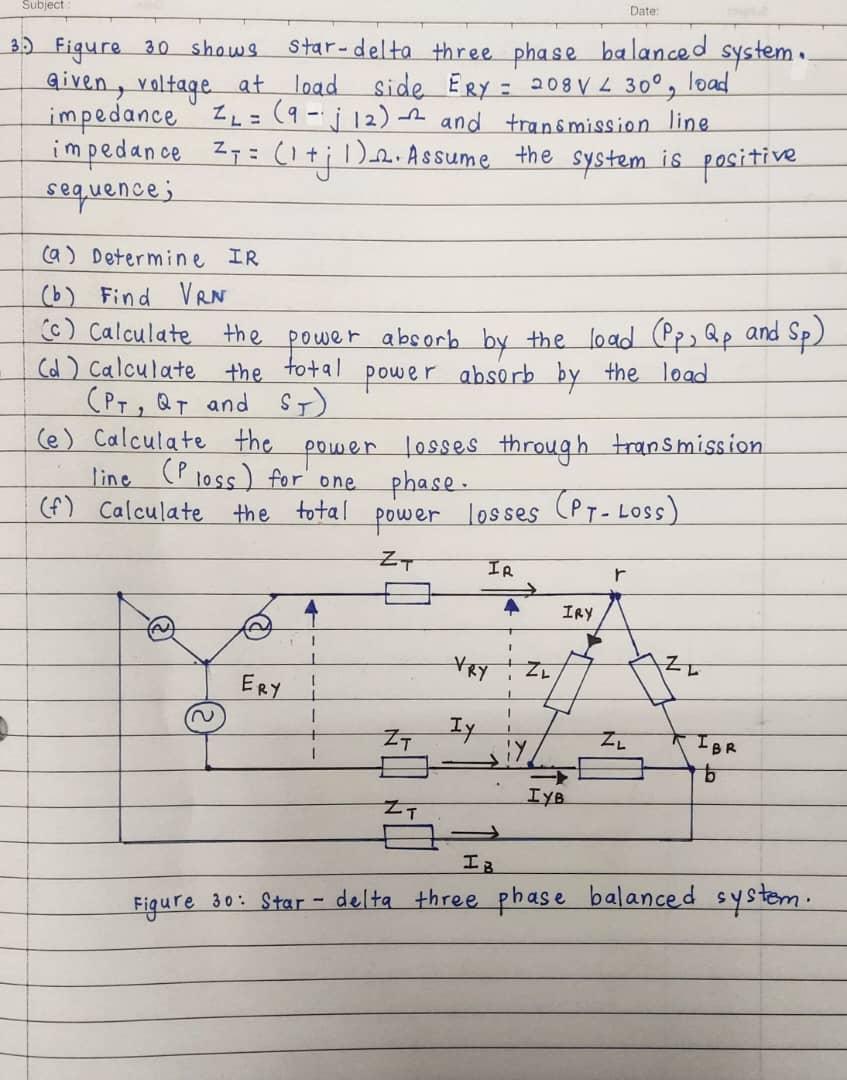 Subject :
Date:
3.) Figure 30 shows star-delta three phase balanced system.
Given, voltage at load side ERY = 208V ∠ 30°, load
impedance ZL = (9 - j 12) Ω and transmission line
impedance ZT = (1 + j 1) Ω. Assume the system is positive
sequence;
(a) Determine IR
(b) Find VRN
(c) Calculate the power absorb by the load (Pp, Qp and Sp)
(d) Calculate the total power absorb by the load
(PT, QT and ST)
(e) Calculate the power losses through transmission
line (P loss) for one phase.
(f) Calculate the total power losses (PT-Loss)
ZT
IR
r
IRY
VRY
ZL
ZL
ERY
ZT
Iy
y
ZL
IBR
b
IYB
ZT
IB
Figure 30: Star - delta three phase balanced system.